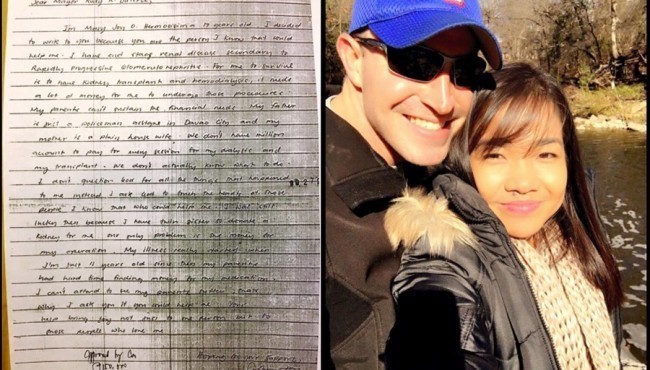 Dear Mayor Rudy R. Duterte,
I'm Mary Joy 19 years old. I decided
to write to you because you are the person I know that could
help me. I have end stage renal disease secondary to
Rapidly Progressive Glomerulonephritis. For me to survive
is to have kidney transplant and hemodialysis, it needs
a lot of money for me to undergo those procedures.
My parents can't sustain the financial needs. My father
is just a policeman assigned in Davao City and my
mother is a plain house wife. We don't have million
account to pay for every session for my dialysis and
my transplant. We don't actually know what to do.
I don't question God for all the things that happened
to me instead I ask God to touch the hearts of those
people I know that who could help me.
because I have twin sister to donate a
kidney for me our only problem is the money for
my operation. My illness really started when
I'm just 11 years old since then my parents
had hard time finding money for my medication.
I can't afford to see my parents
why I ask you if you could help me. You
help bring joy not just to one person but to
those people who love me.
Approved by Cm